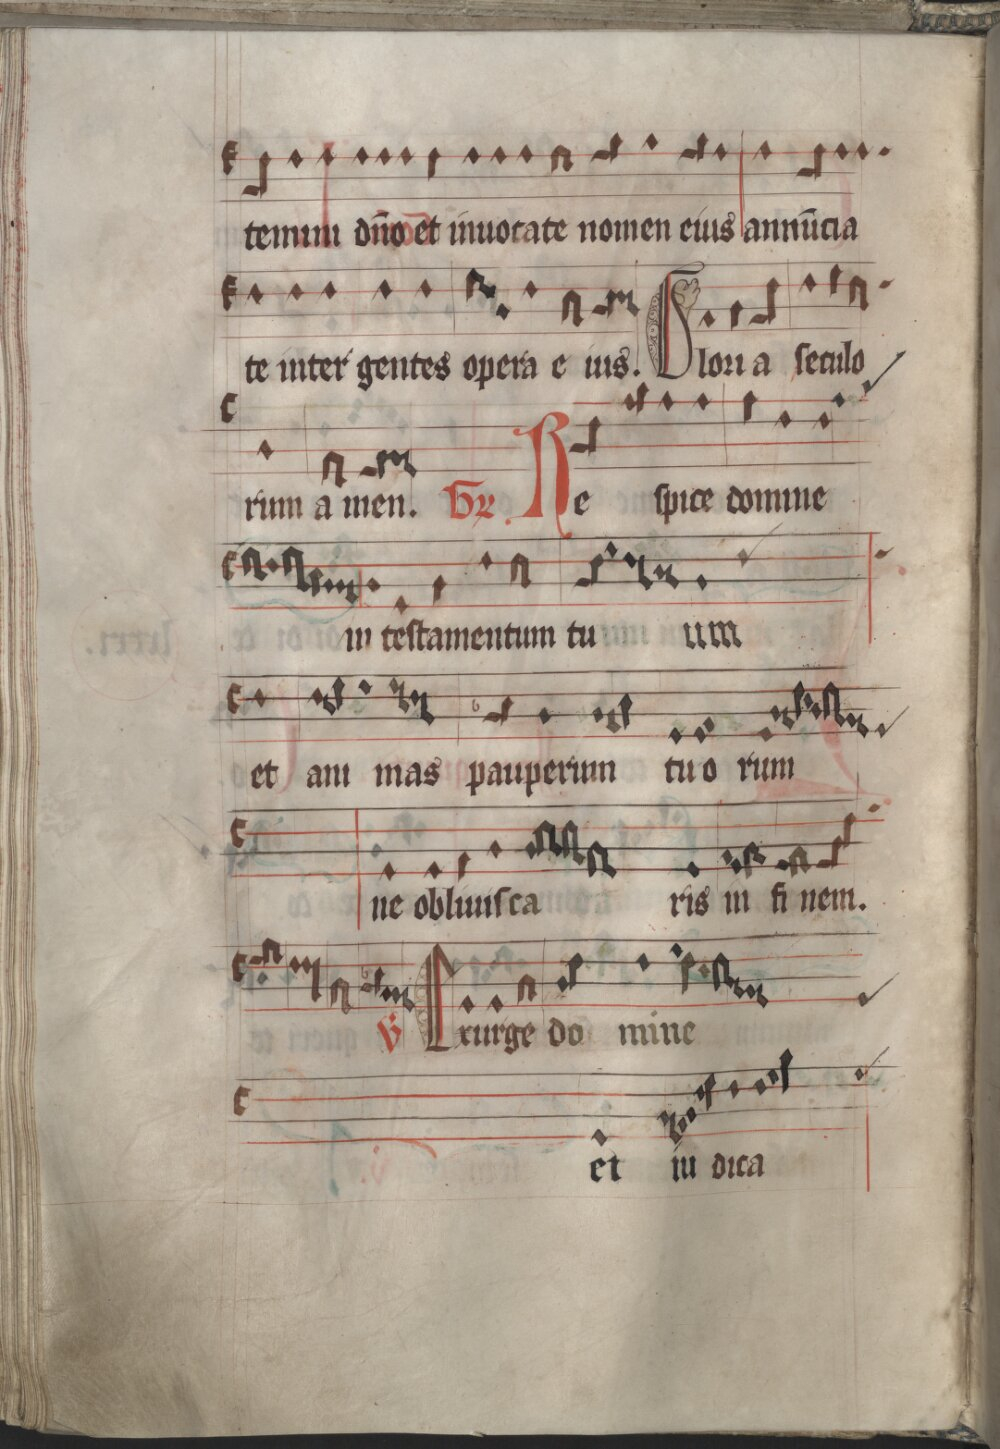 temini dn̄o et inuocate nomen eius annūcia
te inter gentes opera e ius. Glori a seculo
rium a men. Gr Re spice domine
in testamentum tu um
et ani mas pauperum tuo rum
ne obliuisca ris in fi nem.
V Exurge do mine
et iu dica